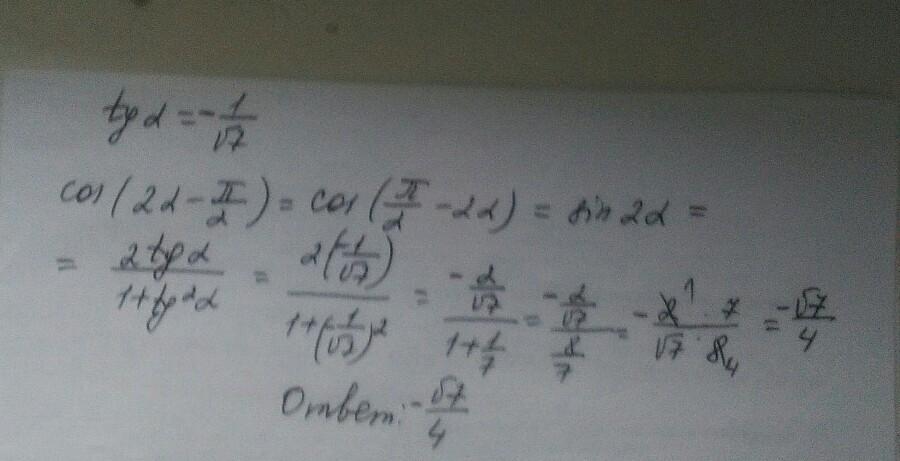 tg α = -1/√7
cos(2α - π/2) = cos(π/2 - 2α) = sin 2α =
= 2 tg α/(1 + tg²α) = 2(-1/√7)/(1 + (-1/√7)²) = (-2/√7)/(1 + 1/7) = (-2/√7)/(8/7) = -(2¹ · 7)/(√7 · 8₄) = -√7/4
Ответ: -√7/4